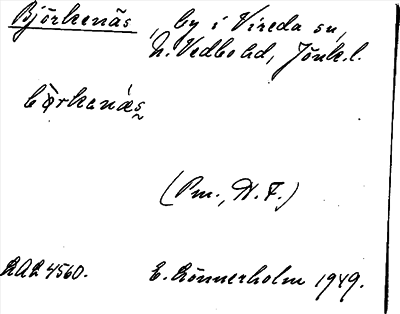 Björkenäs, by i Vireda sn,
N. Vedbo hd, Jönk. l.
bö̀rkenä́s̰
(Pm., N. F.)
LAL 4560. E. Rönnerholm 1949.